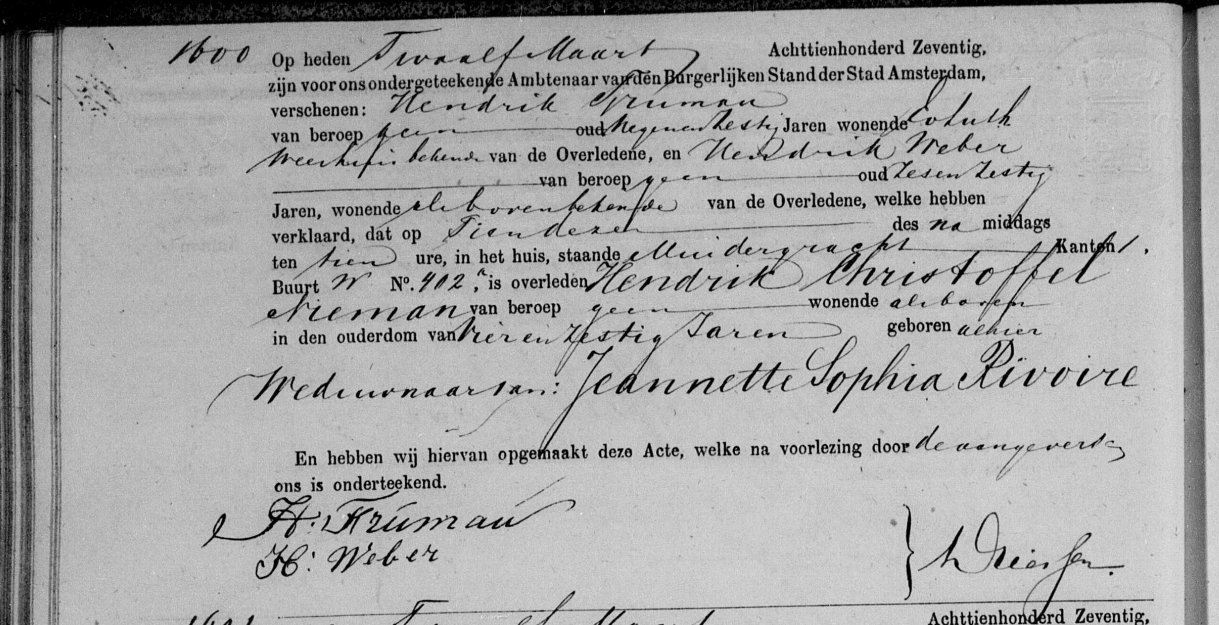 1600 Op heden Twaalf Maart Achttienhonderd Zeventig,
zijn voor ons ondergeteekende Ambtenaar van den Burgerlijken Stand der Stad Amsterdam,
verschenen: Hendrik Truman
van beroep geen oud Negen en Zestig Jaren wonende
bekende van de Overledene, en Hendrik Weber
van beroep geen oud Zes en Zestig
Jaren, wonende als boven bekende van de Overledene, welke hebben
verklaard, dat op Tien dezer des na middags
ten tien ure, in het huis, staande Muidergracht Kanton 1.
Buurt W No. 402, is overleden Hendrik Christoffel
Nieman van beroep geen wonende als boven
in den ouderdom van Vier en Zestig Jaren geboren alhier
Weduwnaar van: Jeannette Sophia Rivoire
En hebben wij hiervan opgemaakt deze Acte, welke na voorlezing door de aangevers en
ons is onderteekend.
H: Truman
H: Weber
Twaalf Maart Achttienhonderd Zeventig,